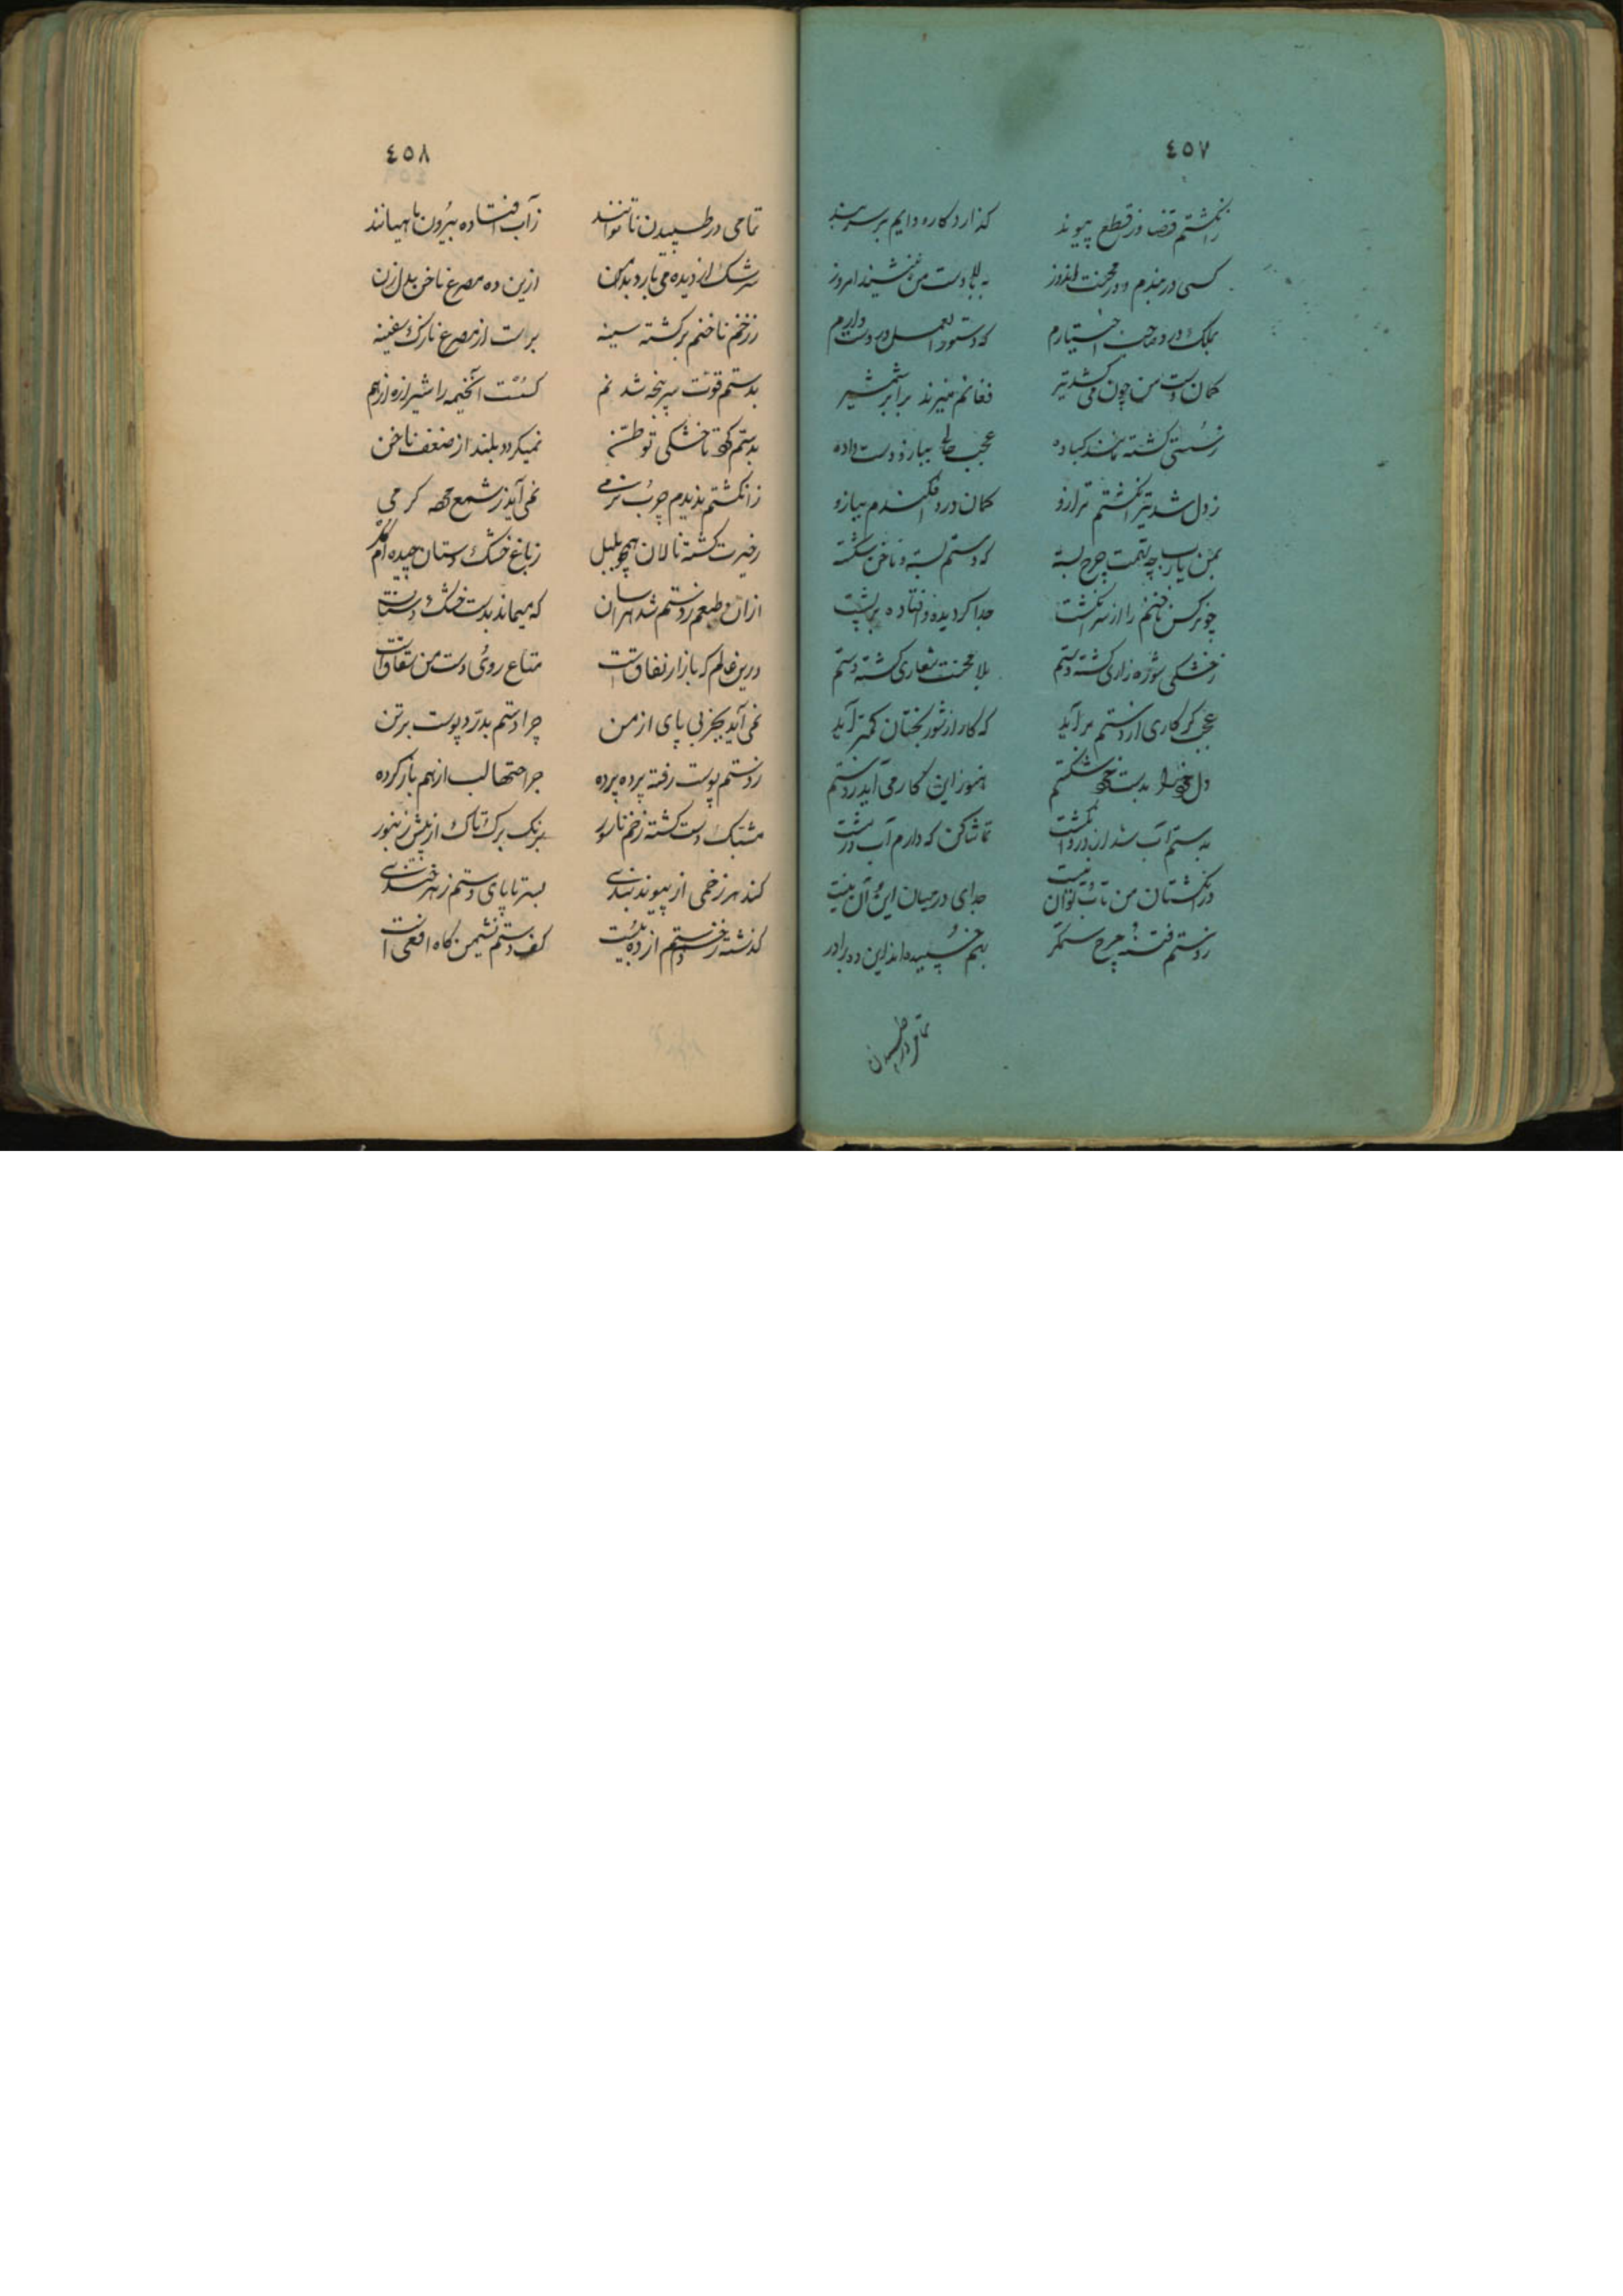 ٤٥٧
زانگشتم قضا در قطع پیوند گذارد کاره دایم بر سر بند
کسی در هندم و در محنت اندوز به بالادست من ننشیند امروز
بملک درد صاحب اختیارم که دستورالعمل در دست دارم
کمان دست من چون می‌کشد تیر فغانم میزند برابر شمشیر
ز سستی گشته مانند کباده عجب بیبازو دست داده
ز دل شد تیر انگشتم ترازو کمان درد افکندم ببازو
بمن یارب چه تهمت چرخ بسته که دستم بسته و ناخن شکسته
چو نرگس ناخنم را از سر انگشت جدا گردیده و افتاده بر پشت
ز خشکی شوره زاری گشته دستم بلا محنت شعاری گشته دستم
عجب گر کاری از دستم برآید که کار از شوربختان کمتر آید
دل خود را بدست خود شکستم هنوز این کار می‌آید ز دستم
بدستم آب شد از درد انگشت تماشا کن که دارم آب در مشت
در انگشتان من تاب و توان نیست جدای در میان این و آن نیست
ز دستم فتنهٔ چرخ ستمگر بهم چسپیده‌اند این ده برادر
تمامی در طپیدن
٤٥٨
تمامی در طپیدن ناتوانند ز آب افتاده بیرون ماهیانند
سرشک از دیده می‌بارد بدامن ازین ده مصرع ناخن بدل زن
ز زخم ناخنم برگشته سینه براست از مصرع نازک سفینه
بدستم قوت سرپنجه شد نم گسست آنخیمه را شیرازه از هم
بدستم کرده تا خشکی توطن نمیگردد بلند از ضعف ناخن
ز انگشتم ندیدم چرب نرمی نمی‌آید ز شمع مرده گرمی
ز غیرت گشته نالان همچو بلبل ز باغ خشک دستان چیده‌ام گل
ازان طبعم ز دستم شد هراسان که میماند بدست خشک دستان
درین عالم که بازار نفاقست متاع روی دست من شقاقست
نمی‌آید بجز بی پای از من چرا دستم بدرد پوست بر تن
ز دستم پوست رفته پرده پرده جراحتها لب از هم باز کرده
مشبک دست گشته زخم ناسور برنگ برگ تاک از نیش زنبور
کند هر زخمی از پیوند بندی بسر تا پای دستم زهرخندی
گذشته زخم دستم از ده و بیست کف دستم نشیمن گاه افعی است